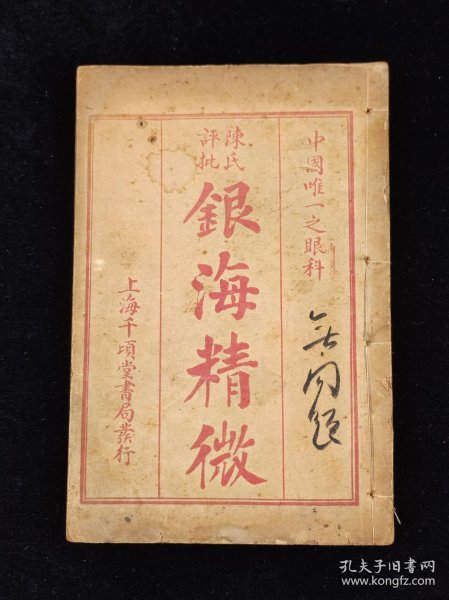 中國唯一之眼科
陳氏
評批
銀海精微
上海千頃堂書局發行
孔夫子旧书网
www.kongfz.com